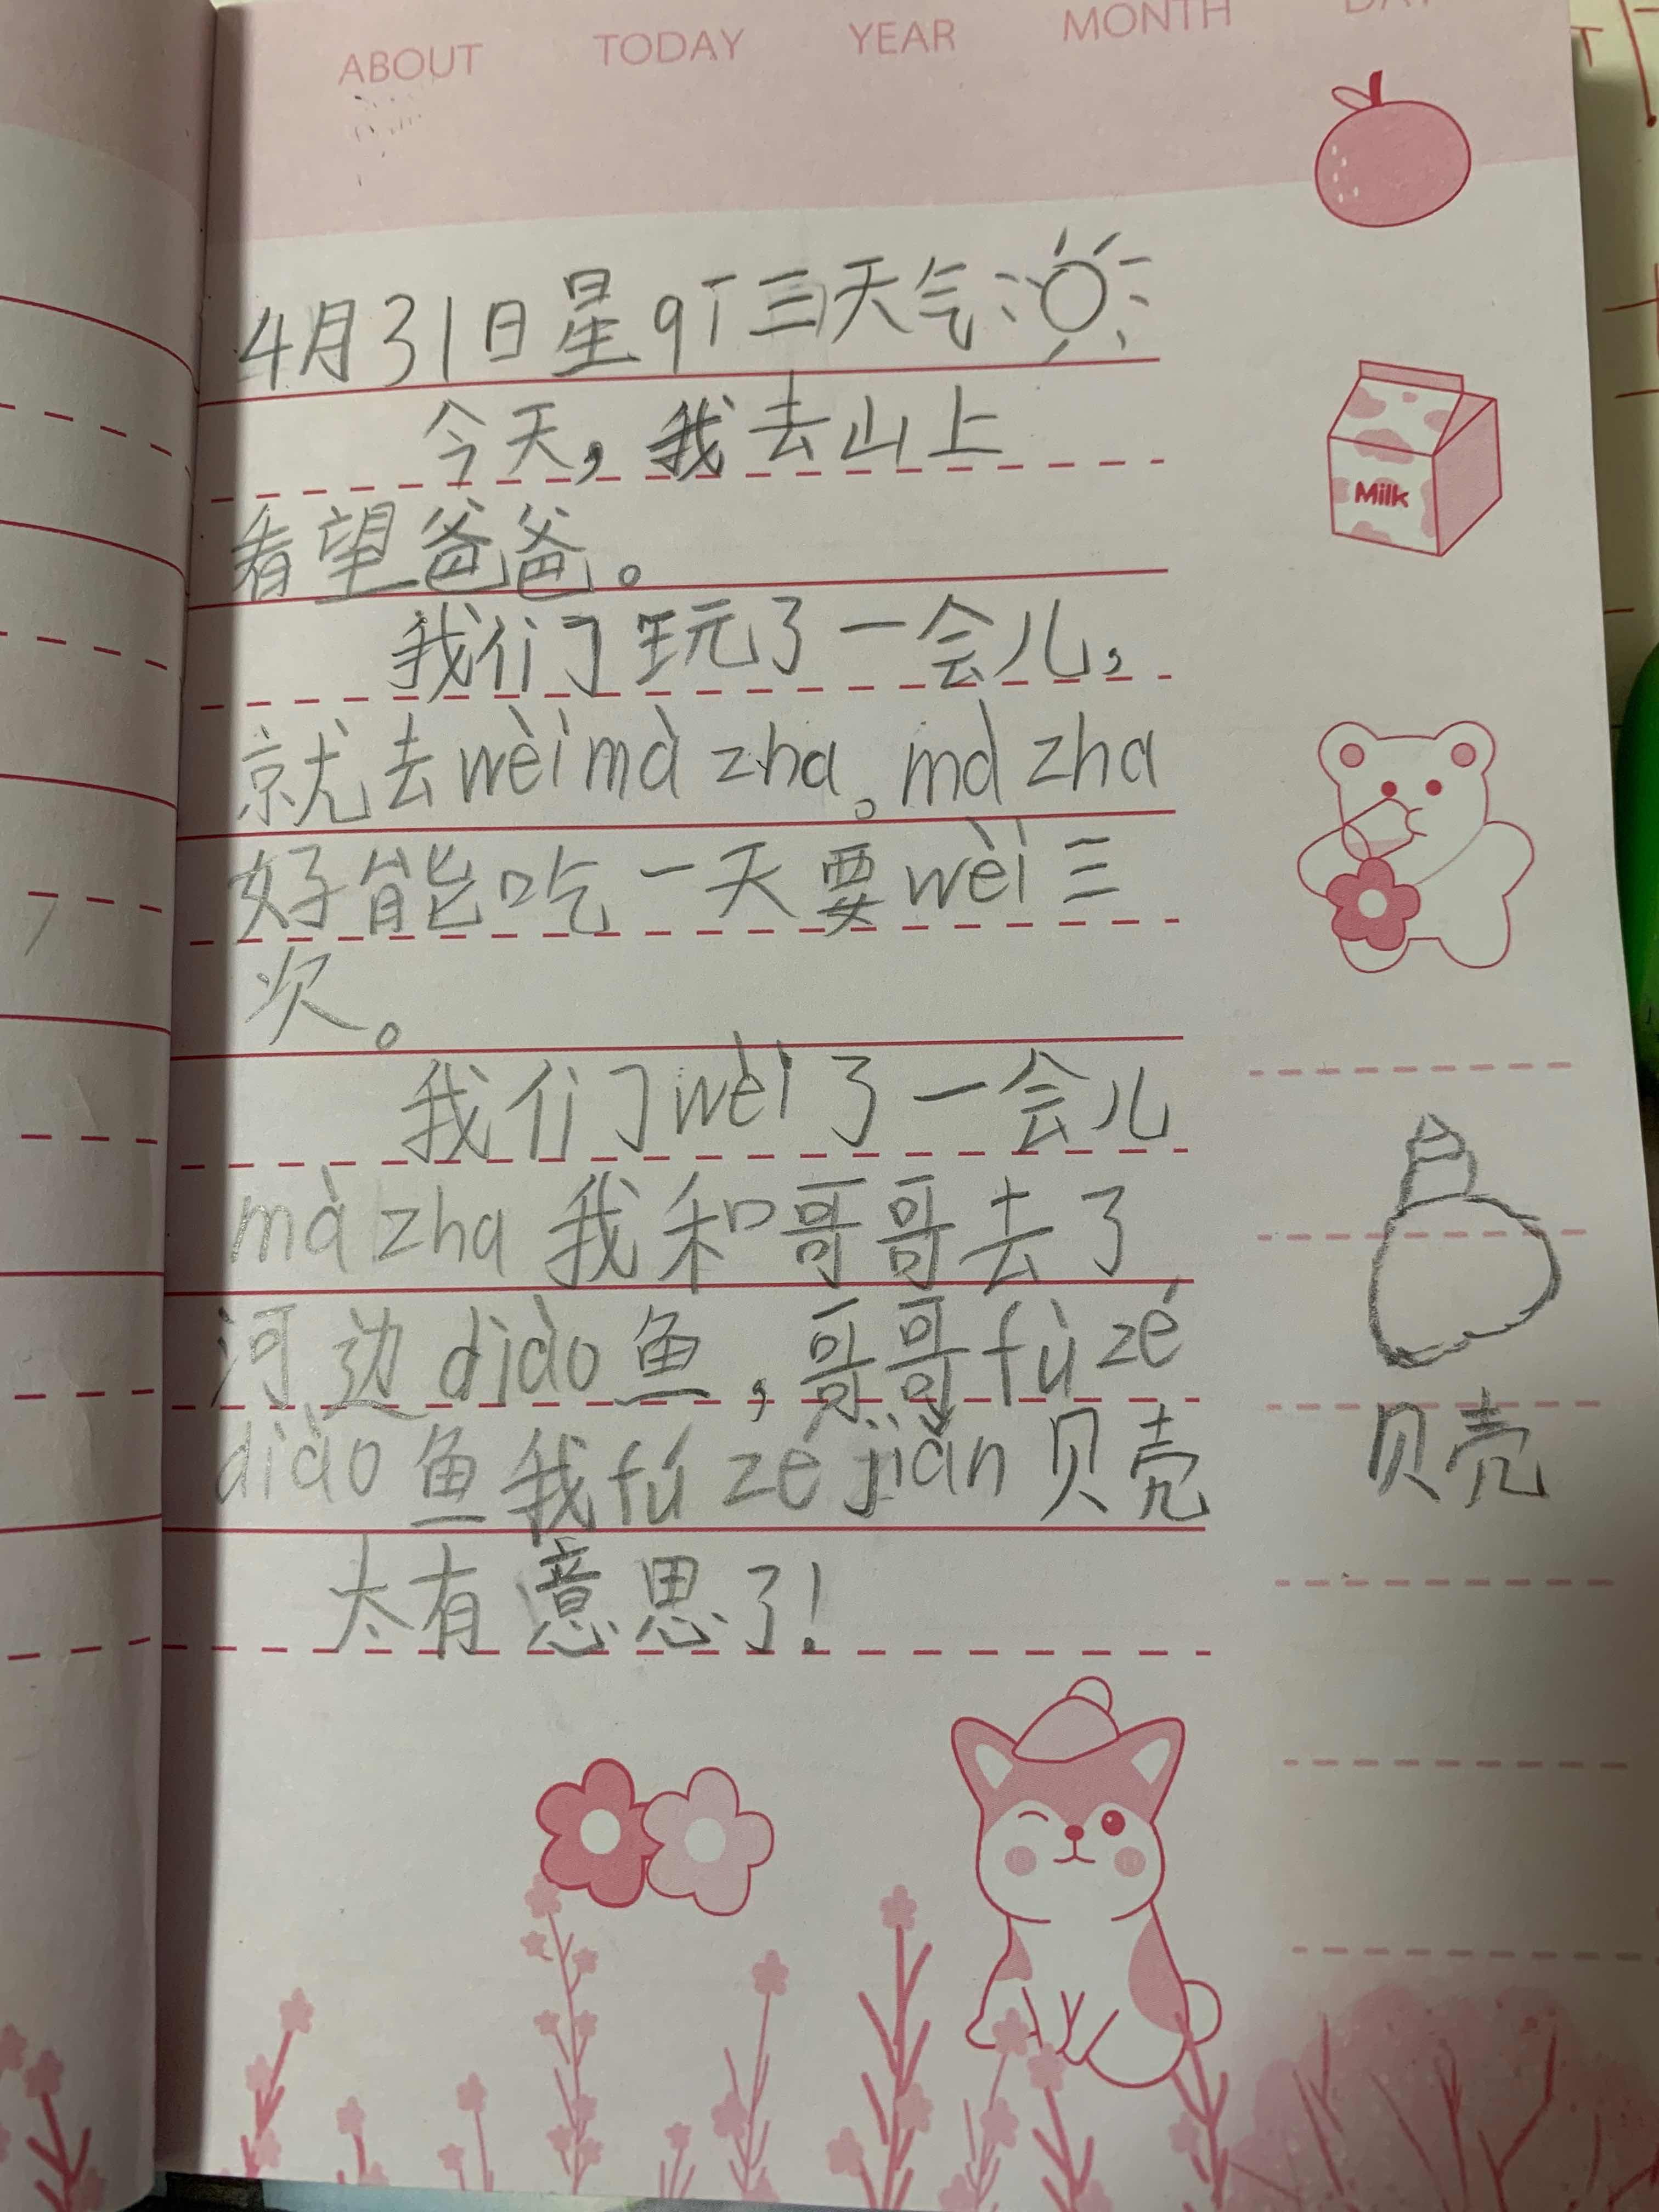 ABOUT TODAY YEAR MONTH DAY
4月31日星qī三天气:
今天,我去山上
看望爸爸。
我们玩了一会儿,
就去wèi mà zha。mà zha
好能吃一天要wèi三
次。
我们wèi了一会儿
mà zha 我和哥哥去了
河边diào鱼,哥哥fù zé
diào鱼我fú zé jiǎn贝壳
太有意思了!
Milk
贝壳